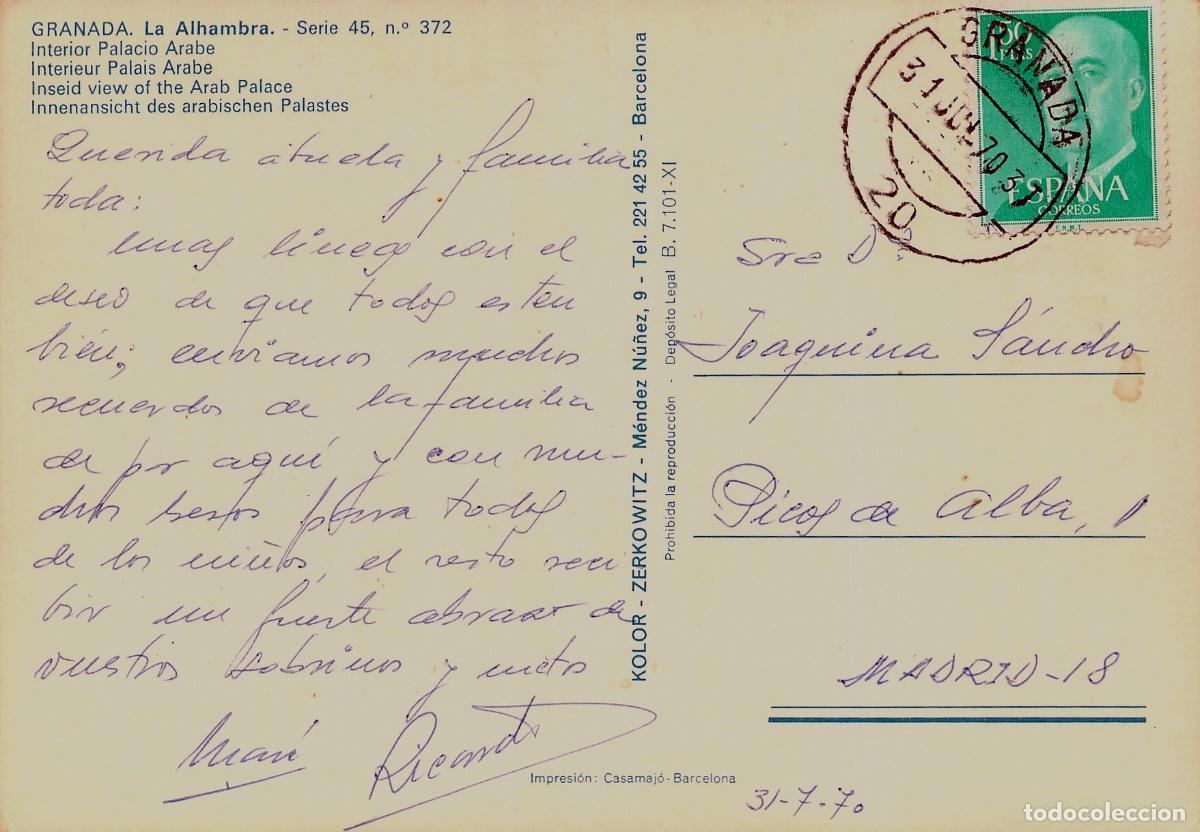 GRANADA. La Alhambra. - Serie 45, n.º 372
Interior Palacio Arabe
Interieur Palais Arabe
Inseid view of the Arab Palace
Innenansicht des arabischen Palastes
Querida abuela y familia
toda:
unas lineas con el
deseo de que todos esten
bien; enviamos muchos
recuerdos de la familia
de por aquí y con mu-
chos besos para todos
de los niños, el resto reci
bir un fuerte abrazo de
vuestros sobrinos y nietos
Mari Ricardo
KOLOR - ZERKOWITZ - Méndez Núñez, 9 - Tel. 221 42 55 - Barcelona
Prohibida la reproducción - Depósito Legal B. 7.101-XI
Impresión: Casamajó-Barcelona
GRANADA
31 JUL 70
20
PTAS
ESPAÑA
CORREOS
F.N.M.T.
Sra Dª
Joaquina Sáncho
Picos de Alba, 1
MADRID-18
31-7-70
todocoleccion